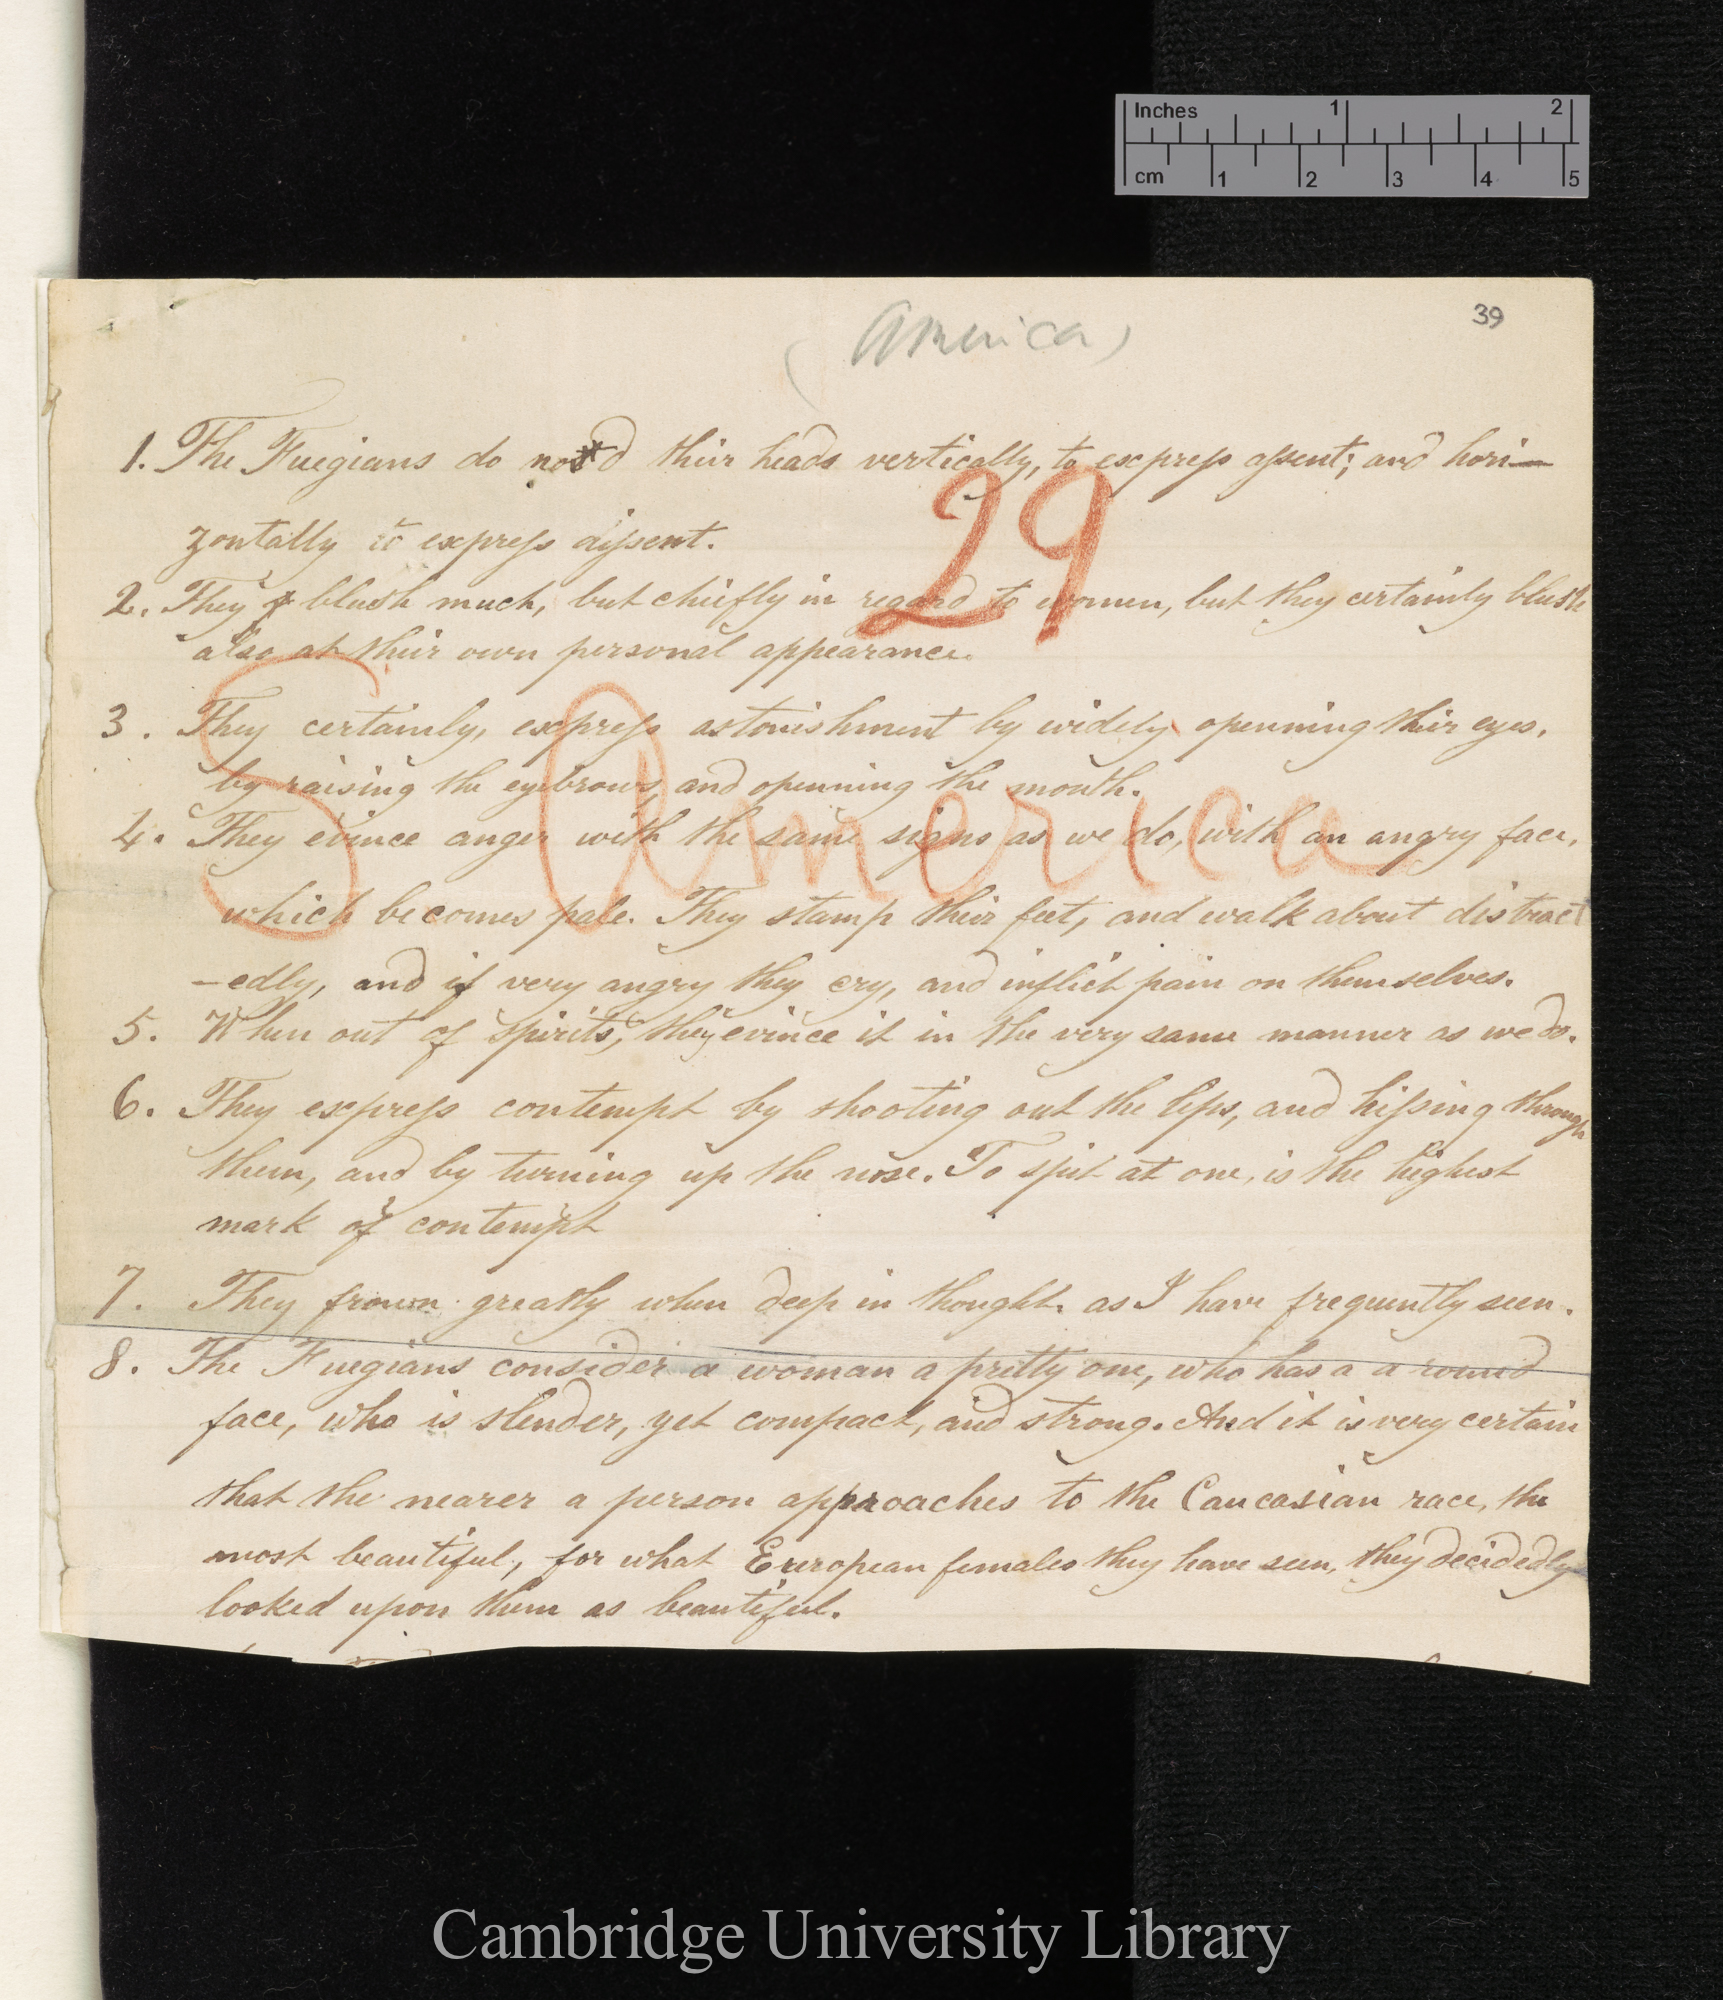 Inches 1 2
cm 1 2 3 4 5
39
(America)
1. The Fuegians do nod their heads vertically, to express assent; and hori-
zontally to express dissent.
29
2. They blush much, but chiefly in regard to women, but they certainly blush
also at their own personal appearance.
3. They certainly, express astonishment by widely openning their eyes,
by raising the eyebrows, and openning the mouth.
S America
4. They evince anger with the same signs as we do, with an angry face,
which becomes pale. They stamp their feet, and walk about distract
-edly, and if very angry they cry, and inflict pain on themselves.
5. When out of spirits, they evince it in the very same manner as we do.
6. They express contempt by shooting out the lips, and hissing through
them, and by turning up the nose. To spit at one, is the highest
mark of contempt
7. They frown greatly when deep in thought. as I have frequently seen.
8. The Fuegians consider a woman a pretty one, who has a a round
face, who is slender, yet compact, and strong. And it is very certain
that the nearer a person approaches to the Caucasian race, the
most beautiful; for what European females they have seen, they decidedly
looked upon them as beautiful.
Cambridge University Library